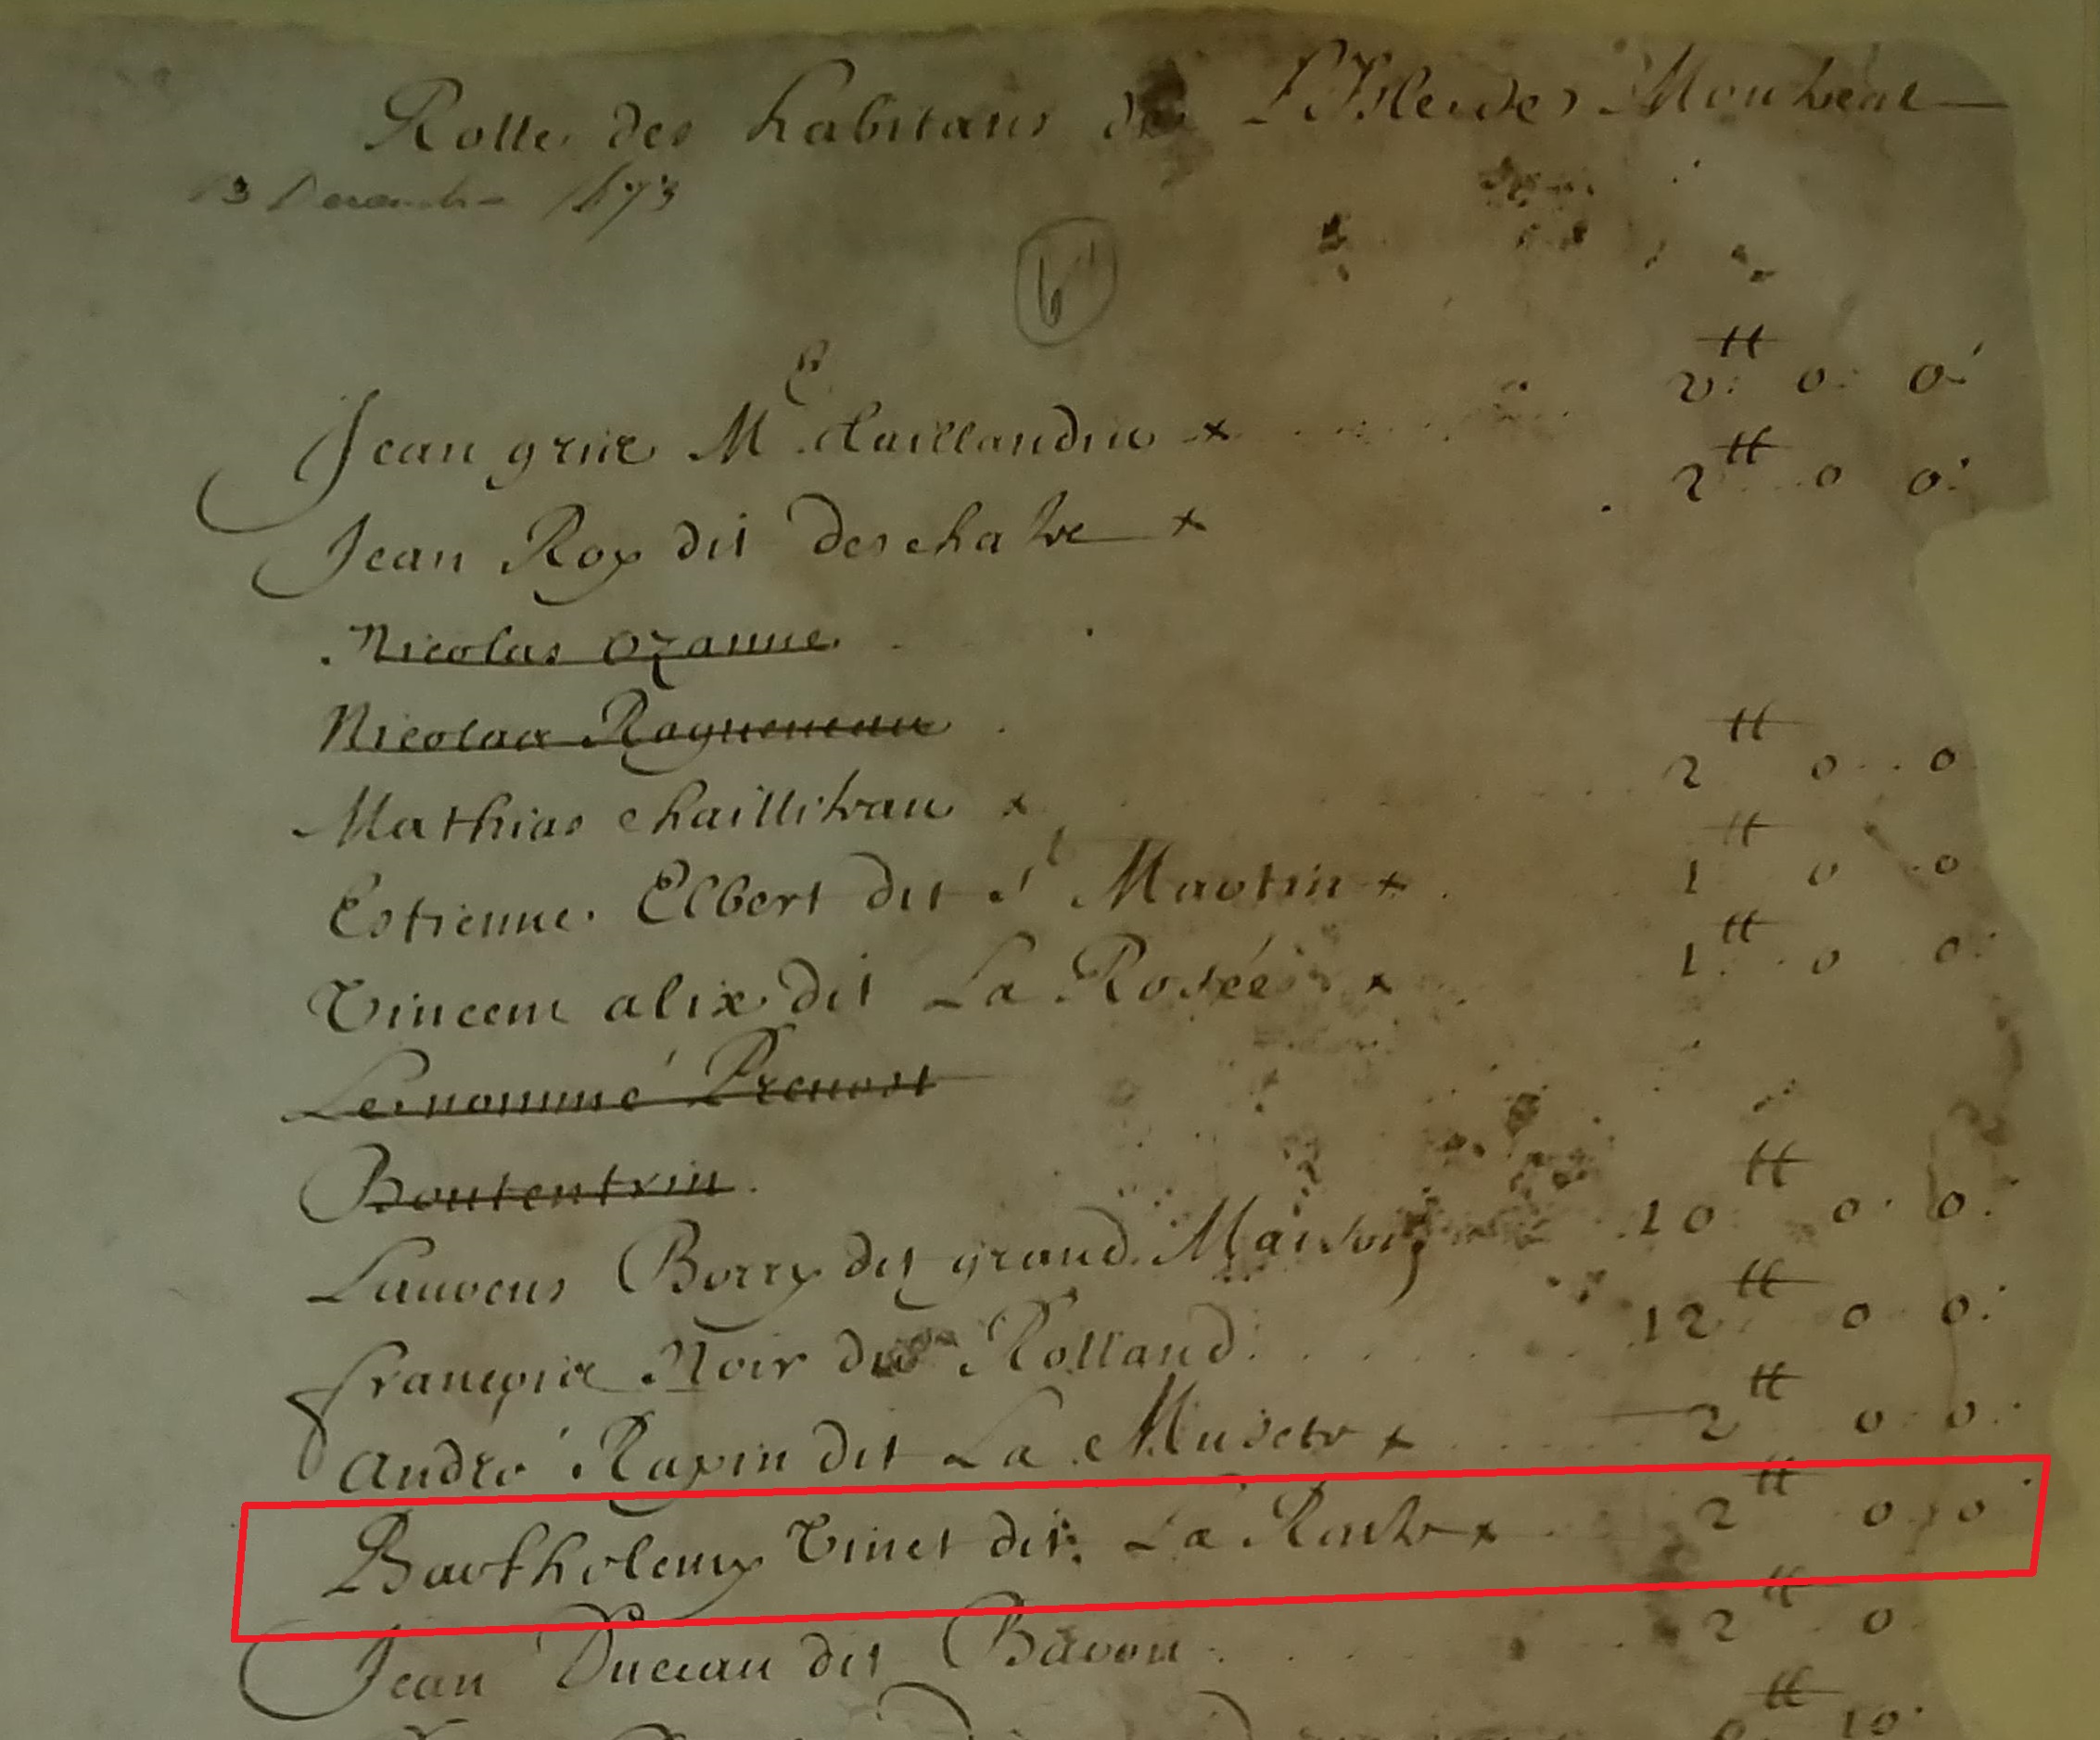 Rolle des habitans de L'Isle de Montreal
13 Decembre 1673
6
Jean gruie Me. taillandie x 2tt 0 0
Jean Roy dit des chatre x 2tt 0 0
Nicolas ozanne
Nicolas Ragueneau
Mathias chaillitrau x 2tt 0 0
Estienne Elbert dit St Martin x 1tt 0 0
Vincent alix dit La Rosée x 1tt 0 0
Le nommé Prevost
Boutentrin
Laurens Borry dit grand Maison 10tt 0 0
françois Noir dit Rolland 12tt 0 0
André Rapin dit La Musete x 2tt 0 0
Bartholemy Vinet dit La Roche x 2tt 0 0
Jean Duceau dit Baron 2tt 0
tt 10